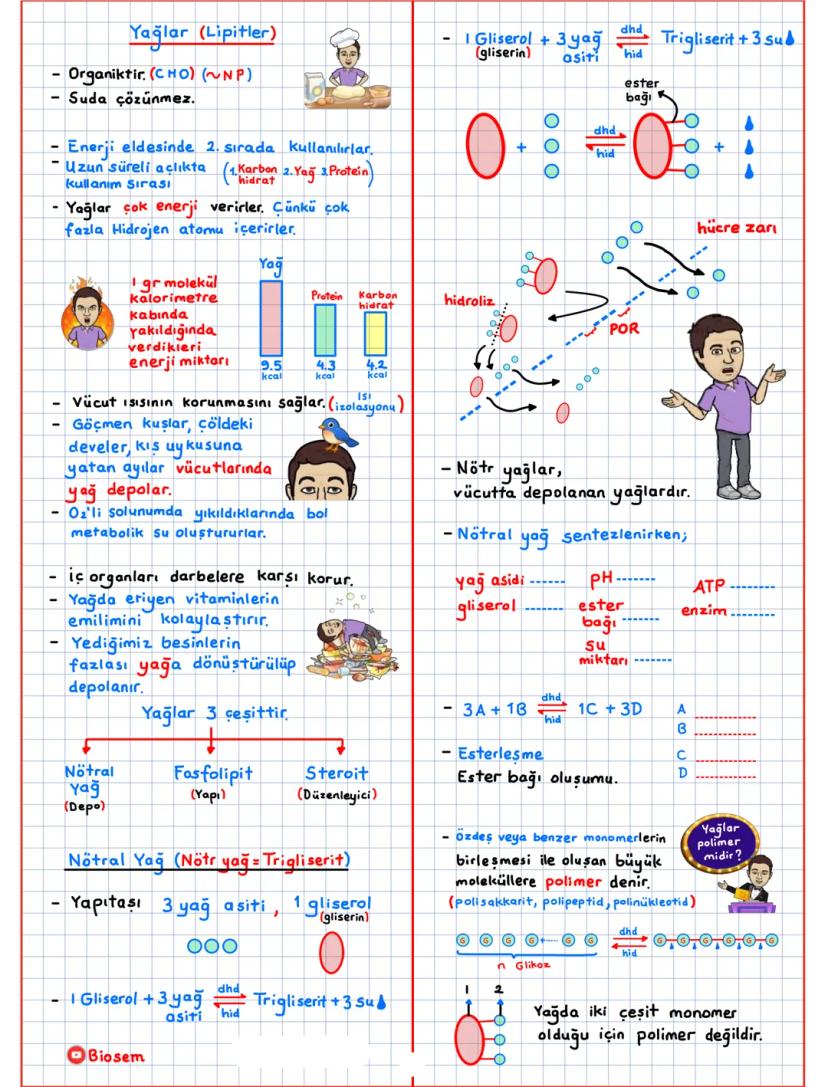 Yağlar (Lipitler)
- Organiktir. (CHO) (~NP)
- Suda çözünmez.
- Enerji eldesinde 2. sırada kullanılırlar.
- Uzun süreli açlıkta
kullanım sırası
(1.Karbon hidrat 2.Yağ 3.Protein)
- Yağlar çok enerji verirler. Çünkü çok
fazla Hidrojen atomu içerirler.
1 gr molekül
kalorimetre
kabında
yakıldığında
verdikleri
enerji miktarı
Yağ
Protein
Karbon
hidrat
9.5
kcal
4.3
kcal
4.2
kcal
- Vücut ısısının korunmasını sağlar. (Isı izolasyonu)
- Göçmen kuşlar, çöldeki
develer, kış uykusuna
yatan ayılar vücutlarında
yağ depolar.
- O2'li solunumda yıkıldıklarında bol
metabolik su oluştururlar.
- iç organları darbelere karşı korur.
- Yağda eriyen vitaminlerin
emilimini kolaylaştırır.
- Yediğimiz besinlerin
fazlası yağa dönüştürülüp
depolanır.
Yağlar 3 çeşittir.
Nötral
Yağ
(Depo)
Fosfolipit
(Yapı)
Steroit
(Düzenleyici)
Nötral Yağ (Nötr yağ = Trigliserit)
- Yapıtaşı 3 yağ asiti, 1 gliserol
(gliserin)
- 1 Gliserol + 3 yağ asiti dhd hid Trigliserit + 3 su
Biosem
- 1 Gliserol + 3 yağ asiti dhd hid Trigliserit + 3 su
(gliserin)
ester
bağı
+
dhd
hid
+
hücre zarı
hidroliz
POR
- Nötr yağlar,
vücutta depolanan yağlardır.
- Nötral yağ sentezlenirken;
yağ asidi ------
pH ------
ATP ------
gliserol ------
ester
bağı ------
enzim ------
su
miktarı ------
- 3A + 1B dhd hid 1C + 3D
A ------
B ------
C ------
D ------
- Esterleşme
Ester bağı oluşumu.
- özdeş veya benzer monomerlerin
birleşmesi ile oluşan büyük
moleküllere polimer denir.
(polisakkarit, polipeptid, polinükleotid)
Yağlar
polimer
midir?
G G G G +..... G G
dhd
hid
G G G G G G
n Glikoz
1 2
Yağda iki çeşit monomer
olduğu için polimer değildir.